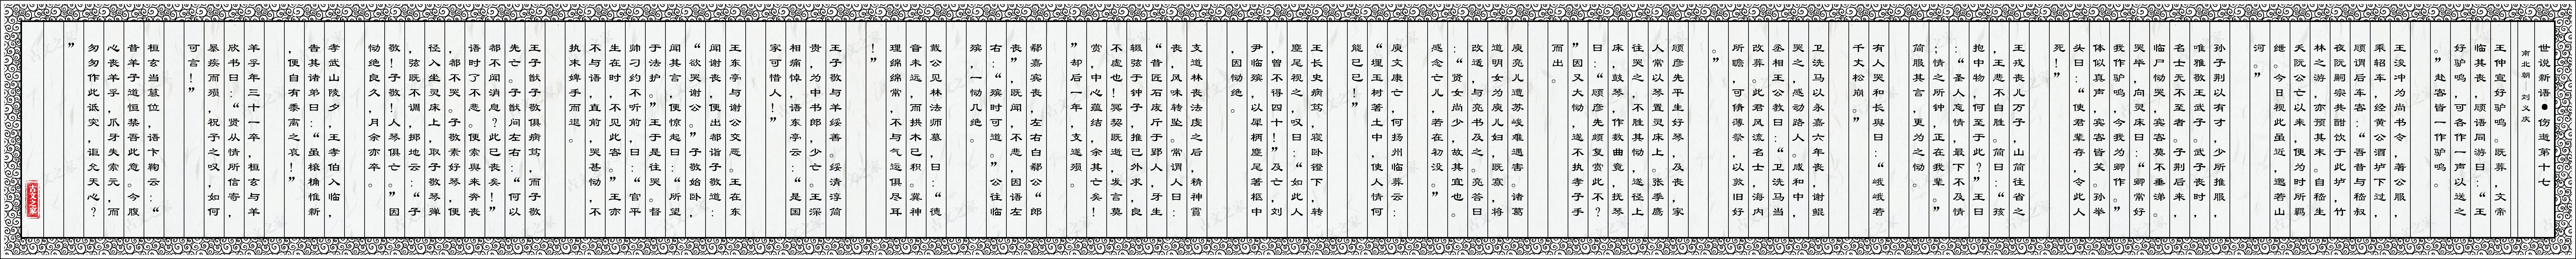 世说新语●伤逝第十七
南北朝——刘义庆
王仲宣好驴鸣。既葬，文帝
临其丧，顾语同游曰：“王
好驴鸣，可各作一声以送之
。”赴客皆一作驴鸣。
王浚冲为尚书令，著公服，
乘轺车，经黄公酒垆下过，
顾谓后车客：“吾昔与嵇叔
夜阮嗣宗共酣饮于此垆，竹
林之游，亦预其末。自嵇生
夭阮公亡以来，便为时所羁
绁。今日视此虽近，邈若山
河。”
孙子荆以有才，少所推服，
唯雅敬王武子。武子丧时，
名士无不至者。子荆后来，
临尸恸哭，宾客莫不垂涕。
哭毕，向灵床曰：“卿常好
我作驴鸣，今我为卿作。”
体似真声，宾客皆笑。孙举
头曰：“使君辈存，令此人
死！”
王戎丧儿万子，山简往省之
，王悲不自胜。简曰：“孩
抱中物，何至于此？”王曰
：“圣人忘情，最下不及情
；情之所钟，正在我辈。”
简服其言，更为之恸。
有人哭和长舆曰：“峨峨若
千丈松崩。”
卫洗马以永嘉六年丧，谢鲲
哭之，感动路人。咸和中，
丞相王公教曰：“卫洗马当
改葬。此君风流名士，海内
所瞻，可脩薄祭，以敦旧好
。”
顾彦先平生好琴，及丧，家
人常以琴置灵床上。张季鹰
往哭之，不胜其恸，遂径上
床，鼓琴，作数曲竟，抚琴
曰：“顾彦先颇复赏此不？
”因又大恸，遂不执孝子手
而出。
庾亮儿遭苏峻难遇害。诸葛
道明女为庾儿妇，既寡，将
改适，与亮书及之。亮答曰
：“贤女尚少，故其宜也。
感念亡儿，若在初没。”
庾文康亡，何扬州临葬云：
“埋玉树著土中，使人情何
能已已！”
王长史病笃，寝卧镫下，转
麈尾视之，叹曰：“如此人
，曾不得四十！”及亡，刘
尹临殡，以犀柄麈尾著柩中
，因恸绝。
支道林丧法虔之后，精神霣
丧，风味转坠。常谓人曰：
“昔匠石废斤于郢人，牙生
辍弦于钟子，推己外求，良
不虚也！冥契既逝，发言莫
赏，中心蕴结，余其亡矣！
”却后一年，支遂殒。
郗嘉宾丧，左右白郗公“郎
丧”，既闻，不悲，因语左
右：“殡时可道。”公往临
殡，一恸几绝。
戴公见林法师墓，曰：“德
音未远，而拱木已积。冀神
理绵绵常，不与气运俱尽耳
！”
王子敬与羊绥善。绥清淳简
贵，为中书郎，少亡。王深
相痛悼，语东亭云：“是国
家可惜人！”
王东亭与谢公交恶。王在东
闻谢丧，便出都诣子敬道：
“欲哭谢公。”子敬始卧，
闻其言，便惊起曰：“所望
于法护。”王于是往哭。督
帅刁约不听前，曰：“官平
生在时，不见此客。”王亦
不与语，直前，哭甚恸，不
执末婢手而退。
王子猷子敬俱病笃，而子敬
先亡。子猷问左右：“何以
都不闻消息？此已丧矣！”
语时了不悲。便索舆来奔丧
，都不哭。子敬素好琴，便
径入坐灵床上，取子敬琴弹
，弦既不调，掷地云：“子
敬！子敬！人琴俱亡。”因
恸绝良久，月余亦卒。
孝武山陵夕，王孝伯入临，
告其诸弟曰：“虽榱桷惟新
，便自有黍离之哀！”
羊孚年三十一卒，桓玄与羊
欣书曰：“贤从情所信寄，
暴疾而殒，祝予之叹，如何
可言！”
桓玄当篡位，语卞鞠云：“
昔羊子道恒禁吾此意。今腹
心丧羊孚，爪牙失索元，而
匆匆作此诋突，讵允天心？
”
古文之家